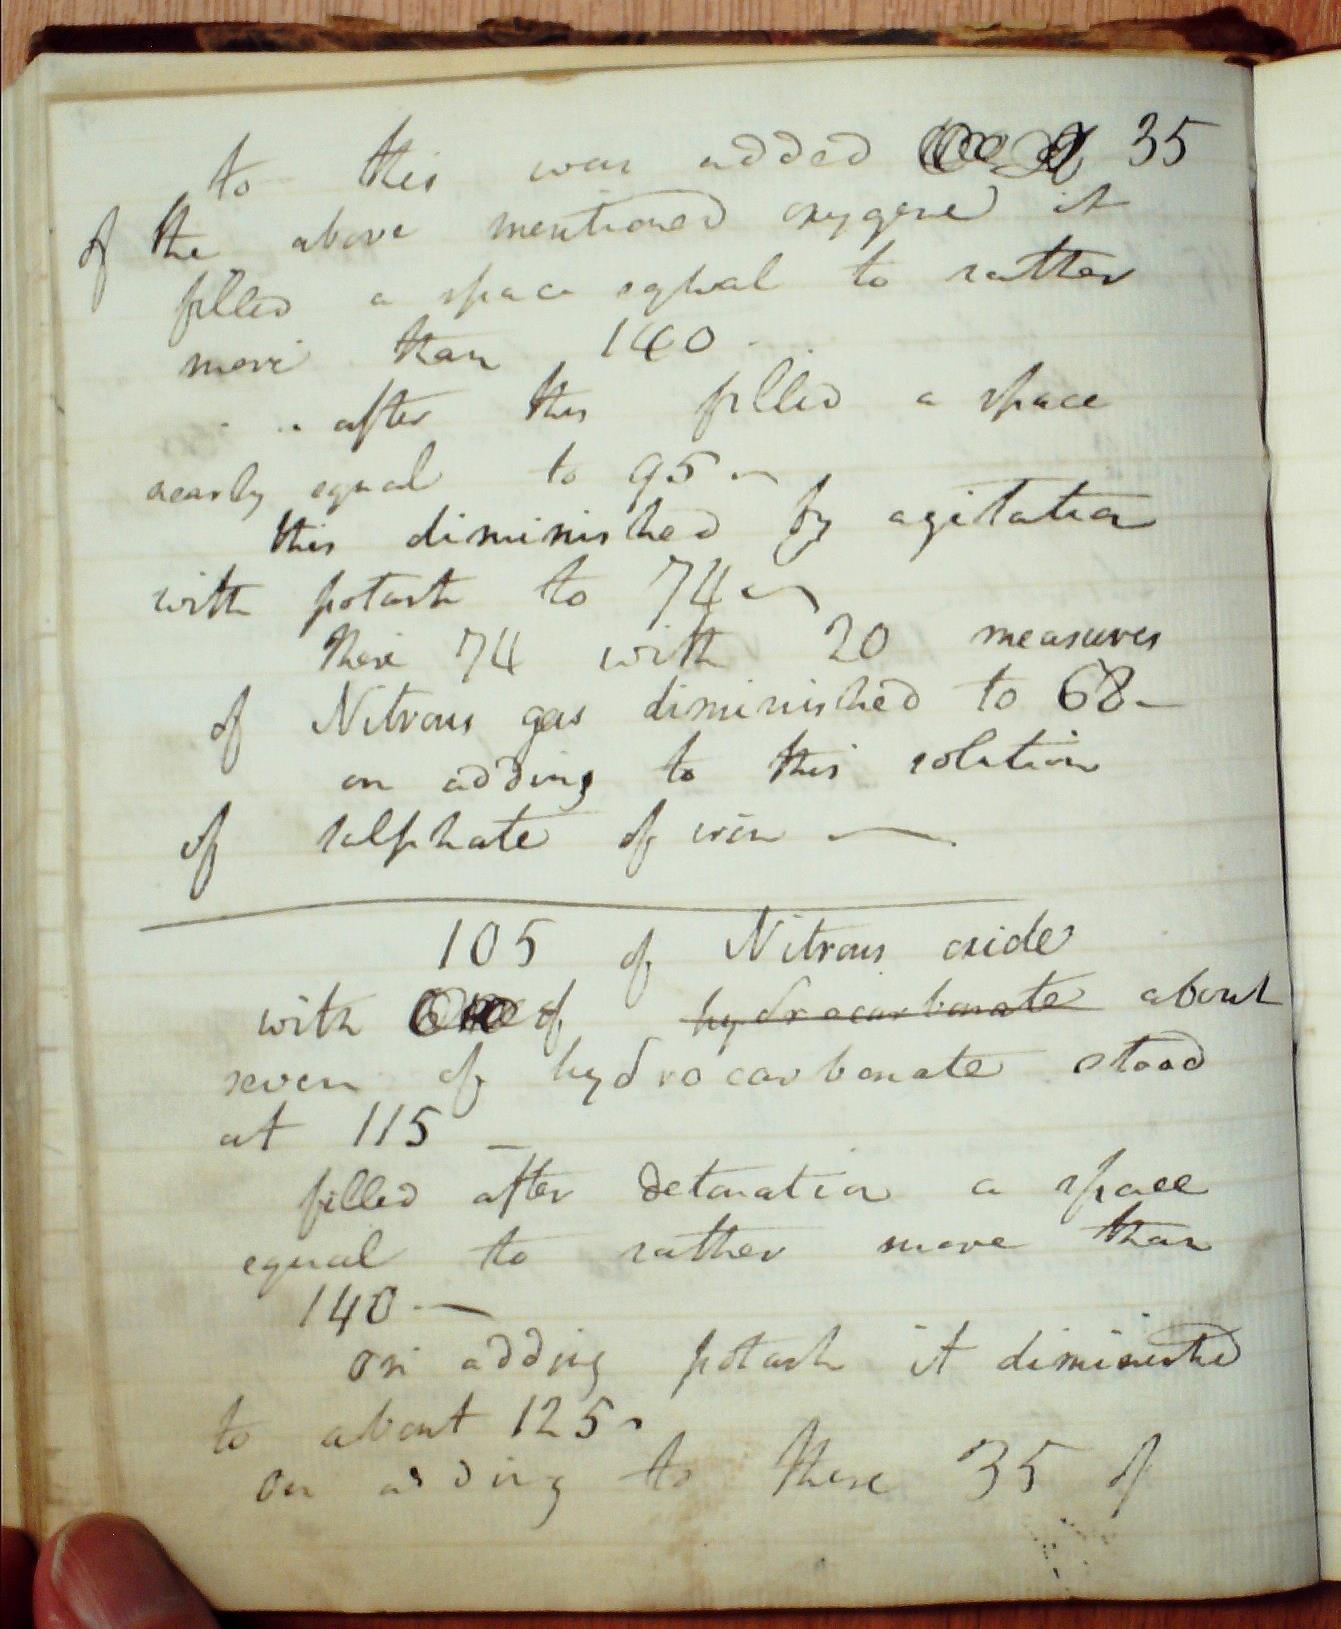 to this was added 35
of the above mentioned oxygene it
filled a space eqhual to rather
more than 140 -
after this filled a space
nearly equal to 95 —
this diminished by agitation
with potash to 74 —
these 74 with 20 measures
of Nitrous gas diminished to 68 —
on adding to this solution
of sulphate of iron —
105 of Nitrous oxide
with of hydrocarbonate about
seven of hydrocarbonate stood
at 115 —
filled after detonation a space
equal to rather more than
140 —
on adding potash it diminished
to about 125 -
on adding to these 35 of